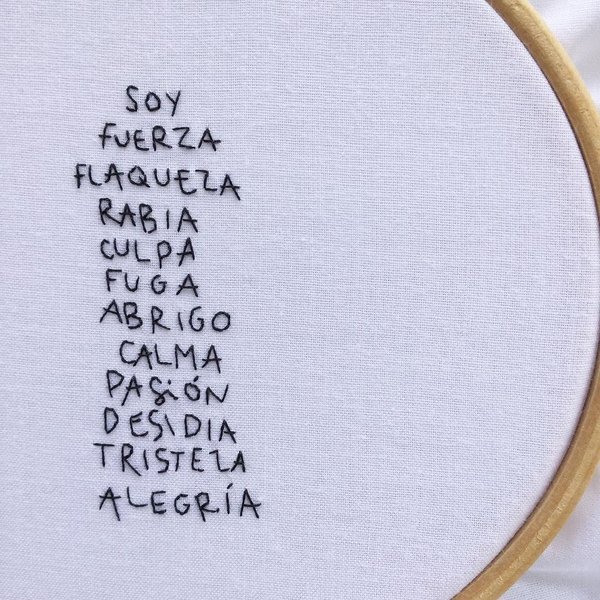 SOY
FUERZA
FLAQUEZA
RABIA
CULPA
FUGA
ABRIGO
CALMA
PASiÓN
DESIDIA
TRISTEZA
ALEGRÍA